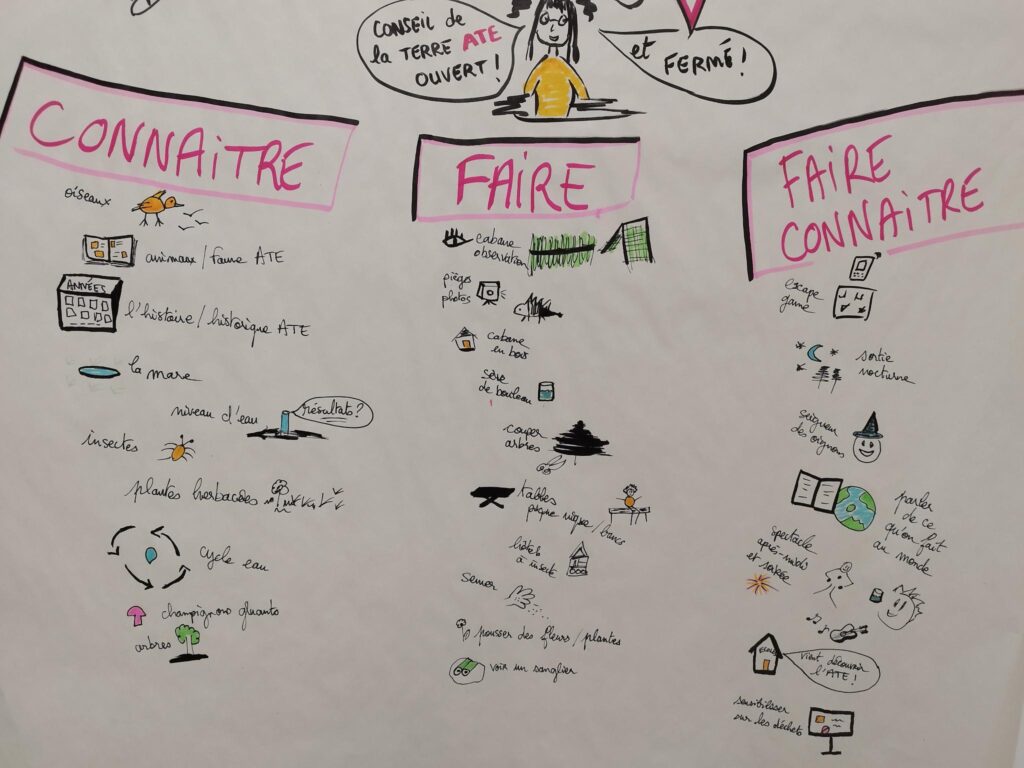 CONSEIL de
la TERRE ATE
OUVERT !
et FERMÉ !
CONNAiTRE
oiseaux
animaux / faune ATE
ANNÉES
l'histoire / historique ATE
la mare
niveau d'eau
résultats ?
insectes
plantes herbacées
cycle eau
champignons gluants
arbres
FAiRE
cabane
observation
pièges
photos
cabane
en bois
sève
de bouleau
couper
arbres
tables
pique nique / bancs
hôtels
à insecte
semer
pousser des fleurs / plantes
voir un sanglier
FAiRE
CONNAiTRE
escape
game
sortie
nocturne
seigneur
des oignons
parler
de ce
qu'on fait
au monde
spectacle
après-midi
et soirée
ECOLE
vient découvrir
l'ATE !
sensibiliser
sur les déchets